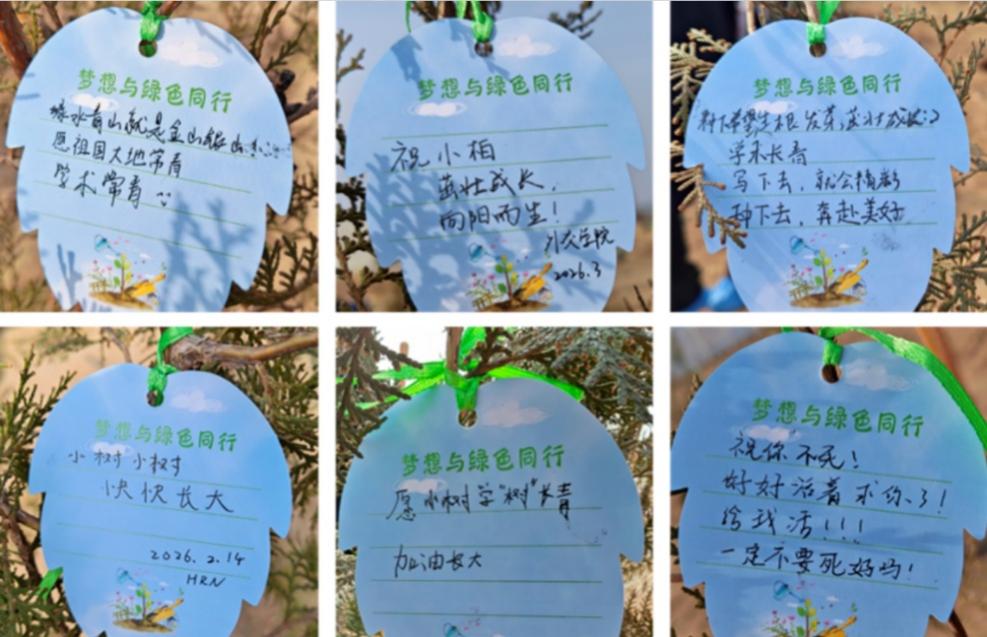 梦想与绿色同行
绿水青山就是金山银山
愿祖国大地常青
学术常青
梦想与绿色同行
祝小柏
茁壮成长,
向阳而生!
外文学院
2026.3
梦想与绿色同行
种下希望生根发芽,茁壮成长
学术长青
写下去,就会精彩
种下去,奔赴美好
梦想与绿色同行
小树小树
快快长大
2026.2.14
HRN
梦想与绿色同行
愿小树学"树"长青
加油长大
梦想与绿色同行
祝你不死!
好好活着求你了!
给我活!!!
一定不要死好吗!